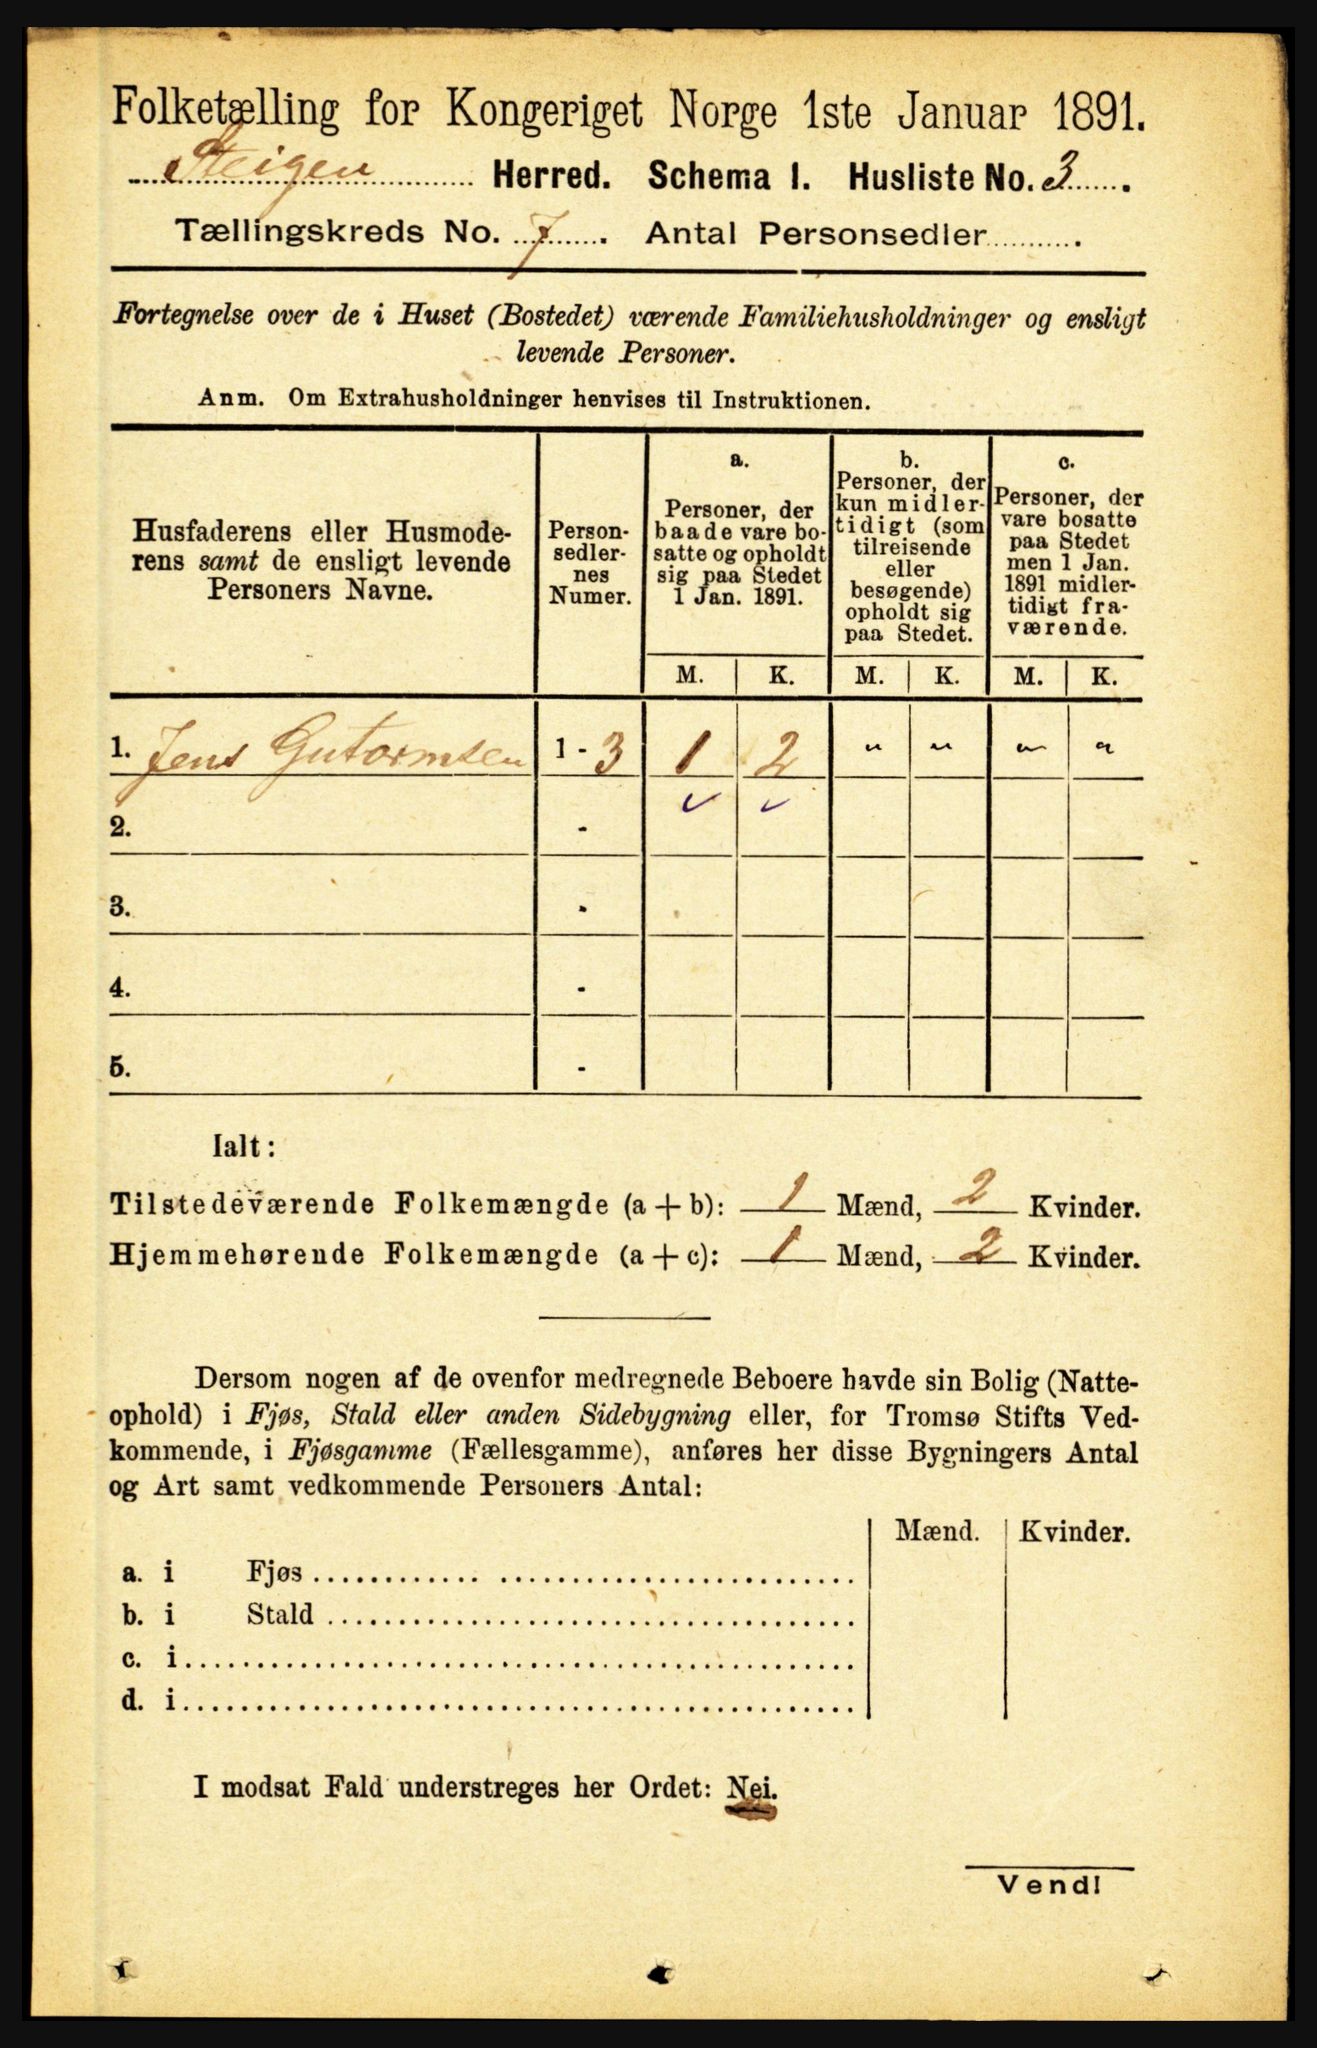 Folketælling for Kongeriget Norge 1ste Januar 1891.
Steigen Herred. Schema 1. Husliste No. 3.
Tællingskreds No. 7. Antal Personsedler
Fortegnelse over de i Huset (Bostedet) værende Familiehusholdninger og ensligt
levende Personer.
Anm. Om Extrahusholdninger henvises til Instruktionen.
Husfaderens eller Husmode-
rens samt de ensligt levende
Personers Navne.
Person-
sedler-
nes
Numer.
a.
Personer, der
baade vare bo-
satte og opholdt
sig paa Stedet
1 Jan. 1891.
b.
Personer, der
kun midler-
tidigt (som
tilreisende
eller
besøgende)
opholdt sig
paa Stedet.
c.
Personer, der
vare bosatte
paa Stedet
men 1 Jan.
1891 midler-
tidigt fra-
værende.
M. K. M. K. M. K.
1. Jens Gutormsen 1 - 3 1 2 " " " "
2. -
3. -
4. -
5. -
Ialt:
Tilstedeværende Folkemængde (a + b): 1 Mænd, 2 Kvinder.
Hjemmehørende Folkemængde (a + c): 1 Mænd, 2 Kvinder.
Dersom nogen af de ovenfor medregnede Beboere havde sin Bolig (Natte-
ophold) i Fjøs, Stald eller anden Sidebygning eller, for Tromsø Stifts Ved-
kommende, i Fjøsgamme (Fællesgamme), anføres her disse Bygningers Antal
og Art samt vedkommende Personers Antal:
Mænd. Kvinder.
a. i Fjøs
b. i Stald
c. i
d. i
I modsat Fald understreges her Ordet: Nei.
Vend!